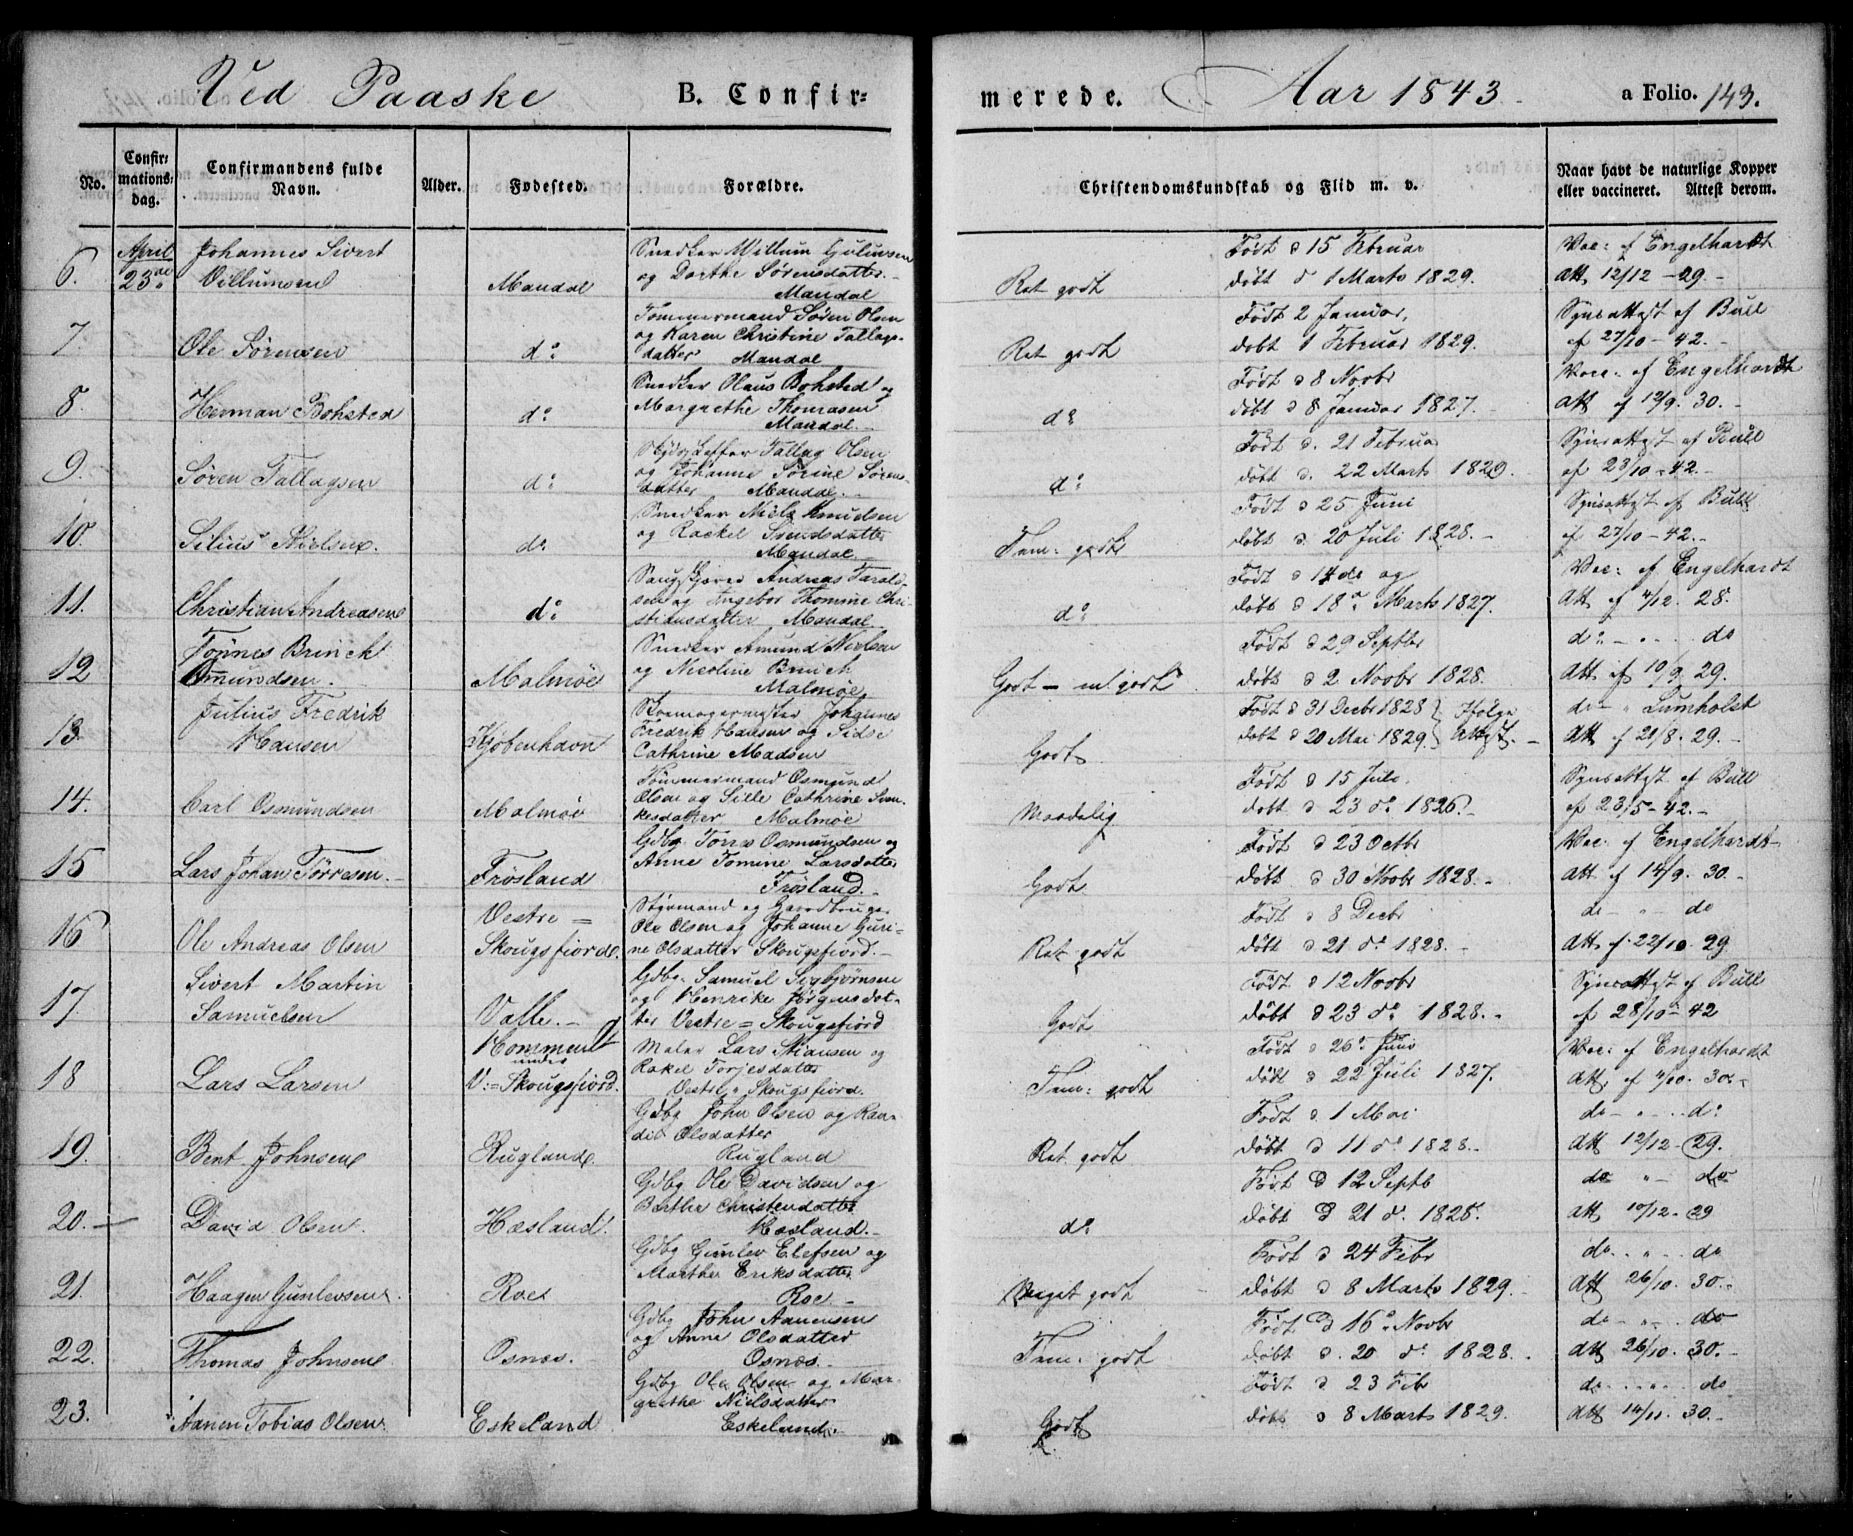 Ved Paaske B. Confir=
merede. Aar 1843 a Folio. 143.
No.
Confir=
mations=
dag.
Confirmandens fulde
Navn.
Alder.
Fødested.
Forældre.
Christendomskundskab og Flid m. v.
Naar havt de naturlige Kopper
eller vaccineret. Attest derom.
6. April Johannes Sivert Snedker Willum
23de Villumsen Mandal og Dorthe Sørensdatter
Mandal
Ret godt
Født d 15 Februar
døbt d 1 Marts 1829.
Vac: af Engelhardt
Att. 12/12 - 29. -
7 Ole Sørensen do
Tømmermand Søren Olsen
og Karen Christine Tallags-
datter Mandal
Ret godt
Født 2 Januar,
døbt 1 Februar 1829.
Synsattest af Bull
af 27/10 - 42. -
8. Herman Bohsted do
Snedker Olaus Bohsted og
Margrethe Thomasen
Mandal. -
do
Født d 8 Novbr
døbt d 8 Januar 1827.
Vacc: af Engelhardt
Att af 12/9. 30. -
9. Søren Tallagsen do
Tallag Olsen
og Johanne Sørine Sørens-
datter Mandal. -
do
Født d. 21 Februar
døbt d. 22 Marts 1829.
Synsattest af Bull
af 28/10 - 42. -
10. Silius Nielsen. do
Snedker Niels Knudsen
og Rackel Svendsdatter
Mandal
Tem: godt
Født d 25 Juni
døbt d. 20 Juli 1828. -
Synsattest af Bull
af 27/10 - 42. -
11. Christian Andreasen do
Andreas Tarald-
sen og Ingebor Thomine Chri-
stiansdatter Mandal
do
Født d 14de og
døbt d 18de Marts 1827.
Vac: af Engelhardt
Att af 4/12. 28.
12 Tønnes Brincht
Amundsen. Malmøe
Snedker Amund Nielsen
og Nicoline Brincht
Malmøe
Godt - m godt
Født d 29 Septbr
døbt d 2 Novbr 1828.
do - " - do
Att af 10/9 29.
13. Julius Fredrik
Hansen Kjøbenhavn
Skomagermester Johannes
Fredrik Hansen og Sidse
Cathrine Madsen
Godt
Født d 31 Decbr 1828 } Ifølge
døbt d 20 Mai 1829 } Attest. -
do - " Lumholst
Att af 21/8. 29. -
14. Carl Osmundsen Malmøe
Tømmermand Osmund
Olsen og Sille Cathrine Sven-
kesdatter Malmøe
Maadelig
Født d 15 Juli
døbt d 23 do 1826. -
Synsattest af Bull
af 23/5 - 42. -
15 Lars Johan Tørresen. - Frøsland
Gdbg. Tørres Osmundsen og
Anne Tomine Larsdatter
Frøsland. -
Godt
Født d 23 Octbr
døbt d 30 Novbr 1828. -
Vac: af Engelhardt
Att af 14/9. 30. -
16 Ole Andreas Olsen Vestre =
Skougsfiord.
Styrmand og Gaardbruger
Ole Olsen og Johanne Guri-
ne Olsdatter Skougsfiord. -
Ret godt
Født d 8 Decbr
døbt d 21 do 1828. -
do - " - do
Att af 22/10. 29
17. Sivert Martin
Samuelsen Valle. -
Gdbg. Samuel Sigbjørnsen
og Henrike Jørgensdat-
ter Vestre = Skougsfiord
Godt
Født d 12 Novbr
døbt d 23 do 1828. -
Synsattest af Bull
af 28/10 - 42
18 Lars Larsen
under
V: = Skougsfiord.
Maler Lars Stiansen og
Rakel Torjesdatter
Vestre " Skougsfiord.
Tem: godt
Født d 26 Juni
døbt d 22 Juli 1827.
Vac: af Engelhardt
Att. af 4/10. 30. -
19. Bent Johnsen Rugland.
Gdbg John Olsen og Ran-
di Olsdatter
Rugland
Ret godt
Født d. 1 Mai
døbt d 11 do 1828. -
do - " - do
Att 12/12 - 29.
20. - David Olsen. Hæsland.
Gdbg Ole Davidsen og
Berthe Christensdatter
Hæsland. -
do
Født d 12 Septb
døbt d 21 do. 1828.
do " - do
Att 10/12. 29
21. Haagen Gunlevsen. Roe
Gdbg Gunlev Elefsen og
Marthe Eriksdatter
Roe. -
Meget godt
Født d 24 Febr
døbt d 8 Marts 1829. -
do. " - do
Att 26/10. 30. -
22. Thomas Johnsen Osnæs.
Gdbg John Aanensen
og Anne Olsdatter
Osnæs. -
Tem: godt
Født d 16 Novbr
døbt d. 20 do 1828. -
do - " - do
Att 26/10. 30. -
23. Aanen Tobias Olsen. Eskeland
Gdbg Ole Olsen og Mar-
grethe Nielsdatter
Eskeland.
Godt
Født d 23 Febr
døbt d 8 Marts 1829. -
do - " - do
Att 14/11. 30. -